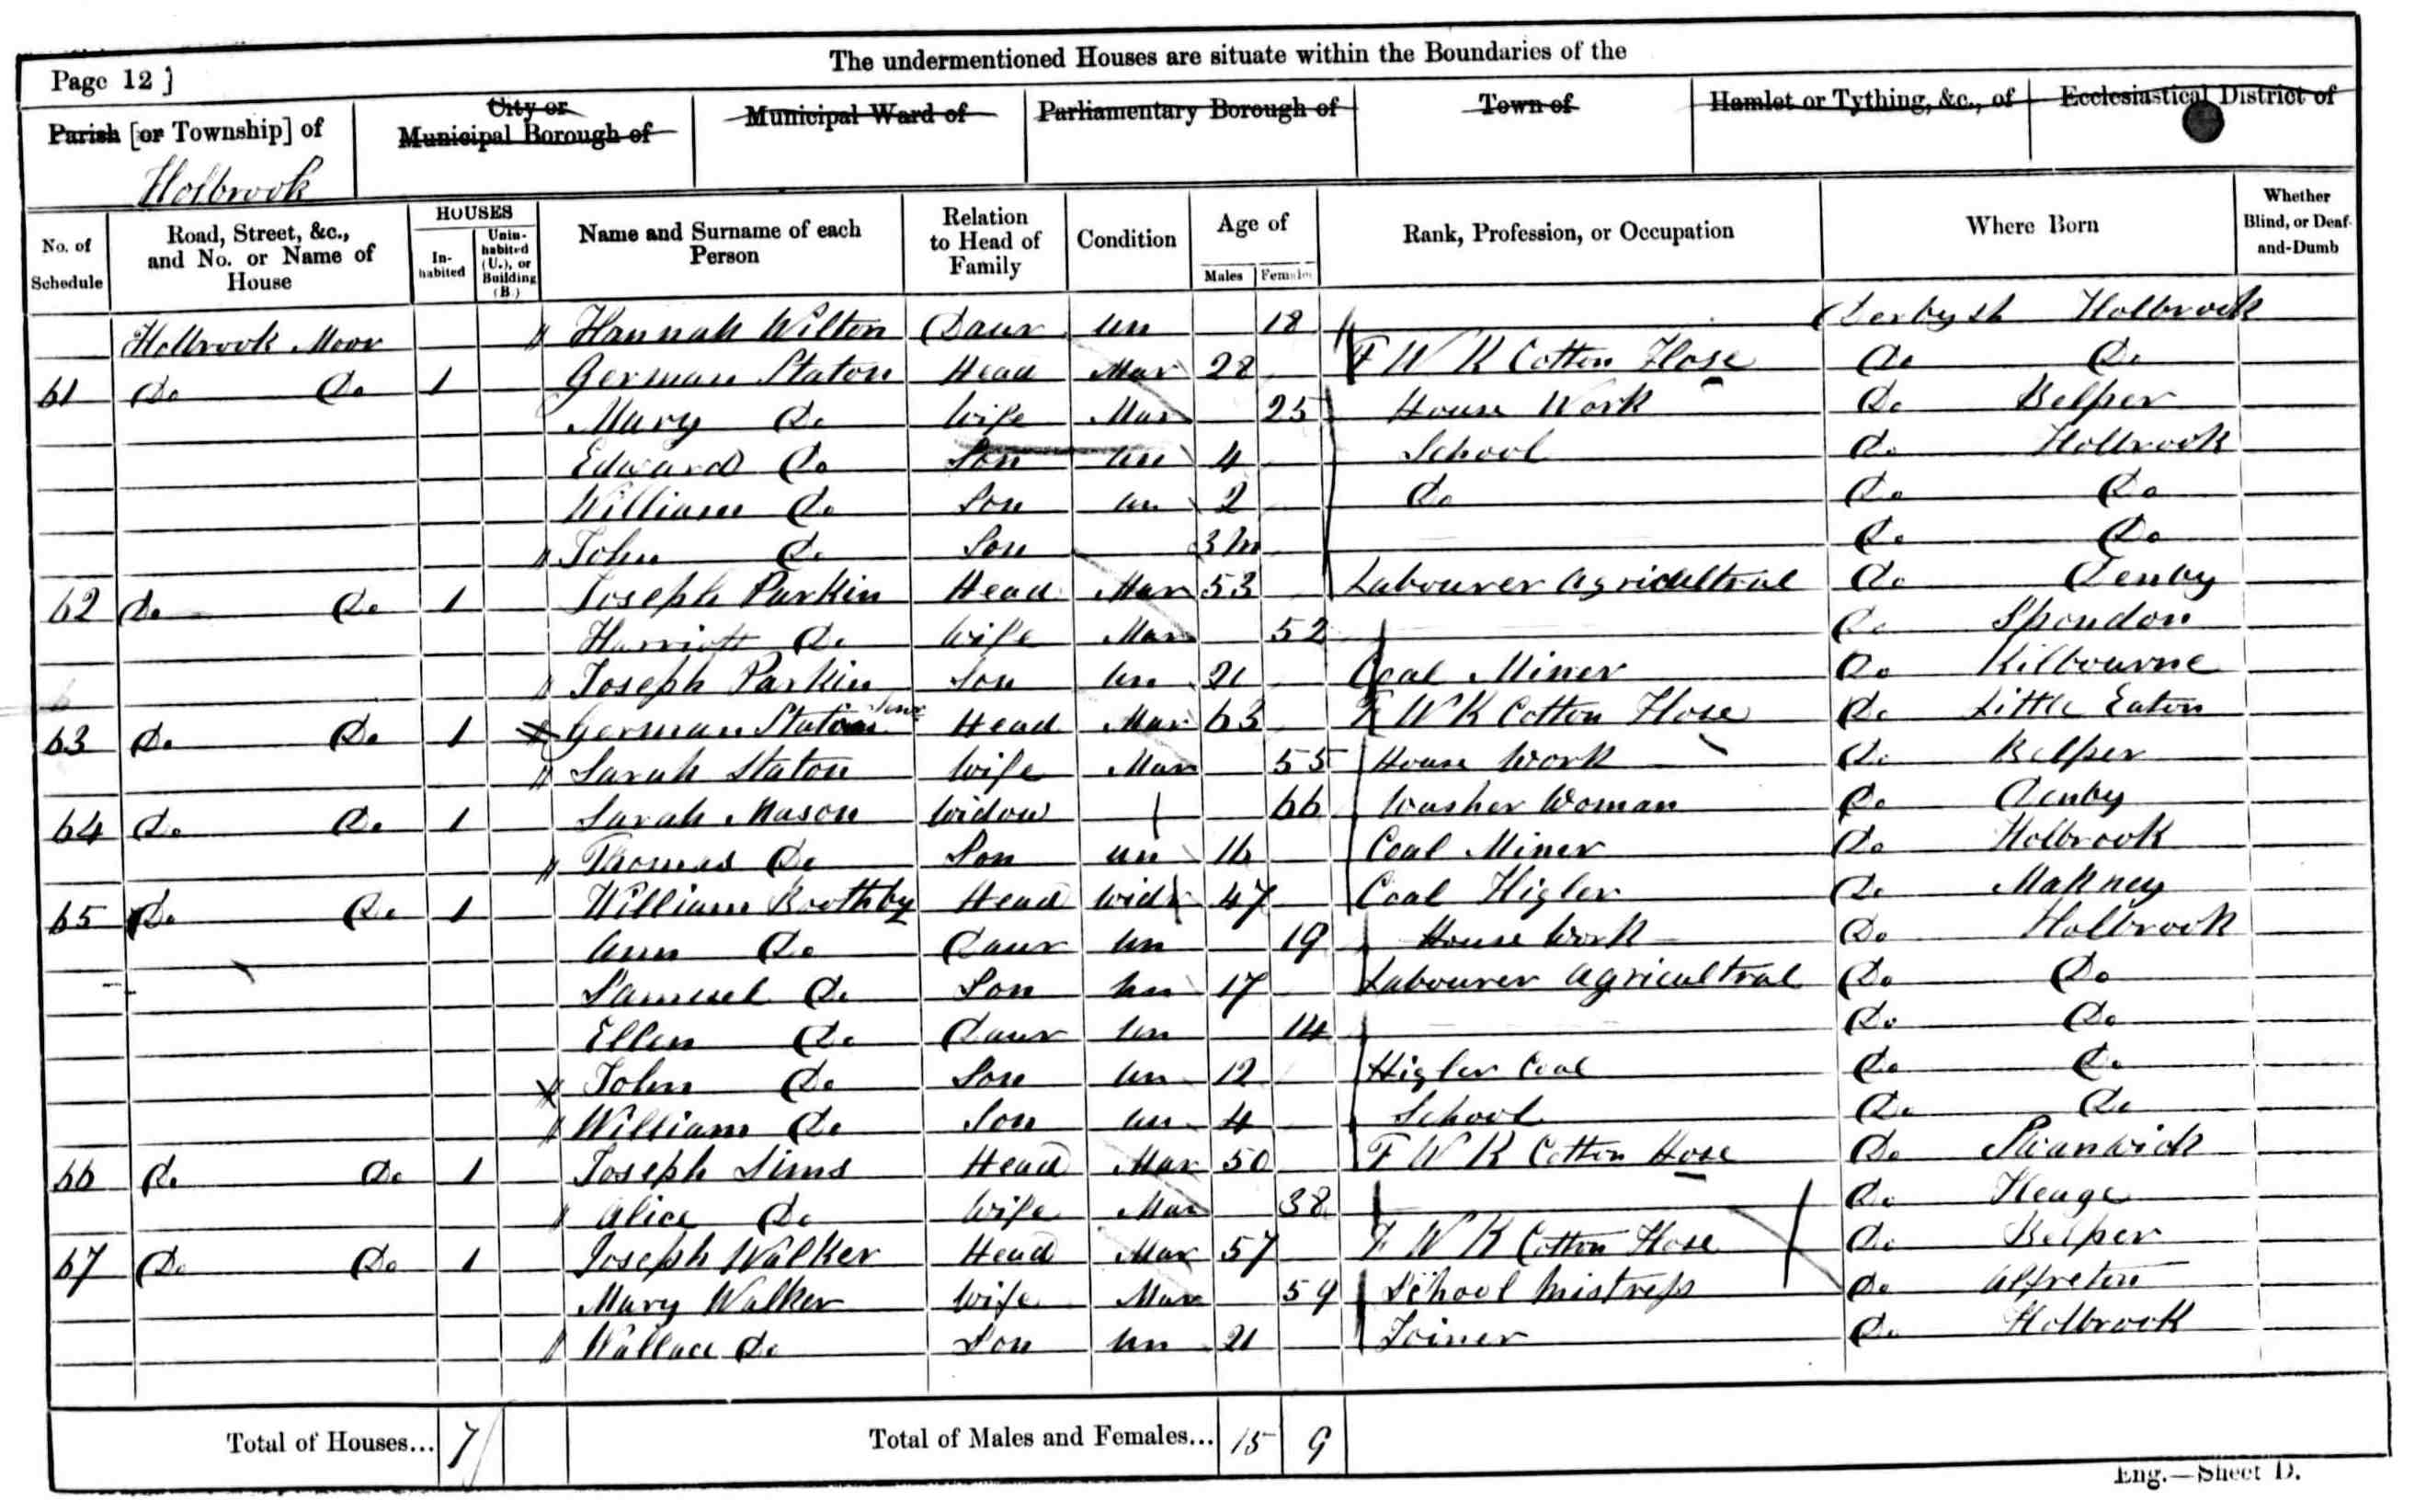 The undermentioned Houses are situate within the Boundaries of the
Page 12]
Parish [or Township] of
City or
Municipal Borough of
Municipal Ward of
Parliamentary Borough of
Town of
Hamlet or Tything, &c., of
Ecclesiastical District of
Holbrook
No. of Schedule
Road, Street, &c., and No. or Name of House
HOUSES
In-habited
Unin-habited (U.), or Building (B.)
Name and Surname of each Person
Relation to Head of Family
Condition
Age of
Males
Females
Rank, Profession, or Occupation
Where Born
Whether Blind, or Deaf-and-Dumb
Holbrook Moor Hannah Wilton Daur un 18 Derbysh Holbrook
61 Do Do 1 German Staton Head Mar 28 F W K Cotton Hose Do Do
Mary Do Wife Mar 25 House Work Do Belper
Edward Do Son un 4 School Do Holbrook
William Do Son un 2 Do Do Do
John Do Son 3m Do Do
62 Do Do 1 Joseph Parkin Head Mar 53 Labourer Agricultral Do Denby
Harriott Do Wife Mar 52 Do Spondon
Joseph Parkin Son un 21 Coal Miner Do Kilbourne
63 Do Do 1 German Staton Head Mar 63 F W K Cotton Hose Do Little Eaton
Sarah Staton Wife Mar 55 House Work Do Belper
64 Do Do 1 Sarah Mason Widow 66 Washer Woman Do Denby
Thomas Do Son un 16 Coal Miner Do Holbrook
65 Do Do 1 William Boothby Head Widr 47 Coal Higler Do Makney
Ann Do Daur un 19 House Work Do Holbrook
Samuel Do Son un 17 Labourer Agricultral Do Do
Ellen Do Daur un 14 Do Do
John Do Son un 12 Higler Coal Do Do
William Do Son un 4 School Do Do
66 Do Do 1 Joseph Sims Head Mar 50 F W K Cotton Hose Do Swanwick
Alice Do Wife Mar 38 Do Heage
67 Do Do 1 Joseph Walker Head Mar 57 F W K Cotton Hose Do Belper
Mary Walker Wife Mar 59 School Mistress Do Alfreton
Wallace Do Son un 21 Joiner Do Holbrook
Total of Houses... 7
Total of Males and Females... 15 9
Eng.—Sheet D.